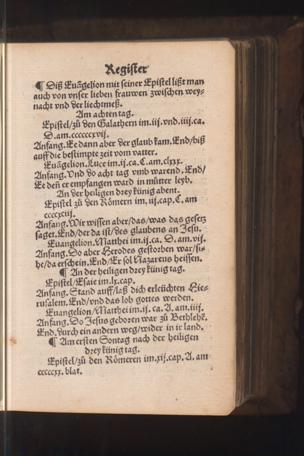 Register
¶ Diß Euãgelion mit seiner Epistel lißt man
auch von vnser lieben frauwen zwischen wey-
nacht vnd der liechtmeß.
Am achten tag.
Epistel/zů den Galathern im.iij.vnd.iiij.ca.
D.am.ccccccxvij.
Anfang. Ee dann aber der glaub kam. End/biß
auff die bestimpte zeit vom vatter.
Euãgelion. Luce im.ij.ca. C.am.clxxx.
Anfang. Vnd do acht tag vmb warend. End/
Ee deñ er empfangen ward in můtter leyb.
An der heiligen drey künig abent.
Epistel zů den Römern im.iij.cap. C. am
ccccxciij.
Anfang. Wir wissen aber/das/was das gesetz
saget. End/der da ist/des glaubens an Jesu.
Euangelion. Matthei im.ij.ca. D. am.vij.
Anfang. Do aber Herodes gestorben war/si-
he/da erschein. End/Er sol Nazareus heissen.
¶ An der heiligen drey künig tag.
Epistel/Esaie im.lx.cap.
Anfang. Stand auff/laß dich erleüchten Hie-
rusalem. End/vnd das lob gottes werden.
Euangelion/Matthei im.ij.ca. A. am.iiij.
Anfang. Do Jesus geboren war zů Bethlehē.
End. Durch ein andern weg/wider in ir land.
¶ Am ersten Sontag nach der heiligen
drey künig tag.
Epistel/zů den Römeren im.xij.cap. A. am
ccccccxx.blat.